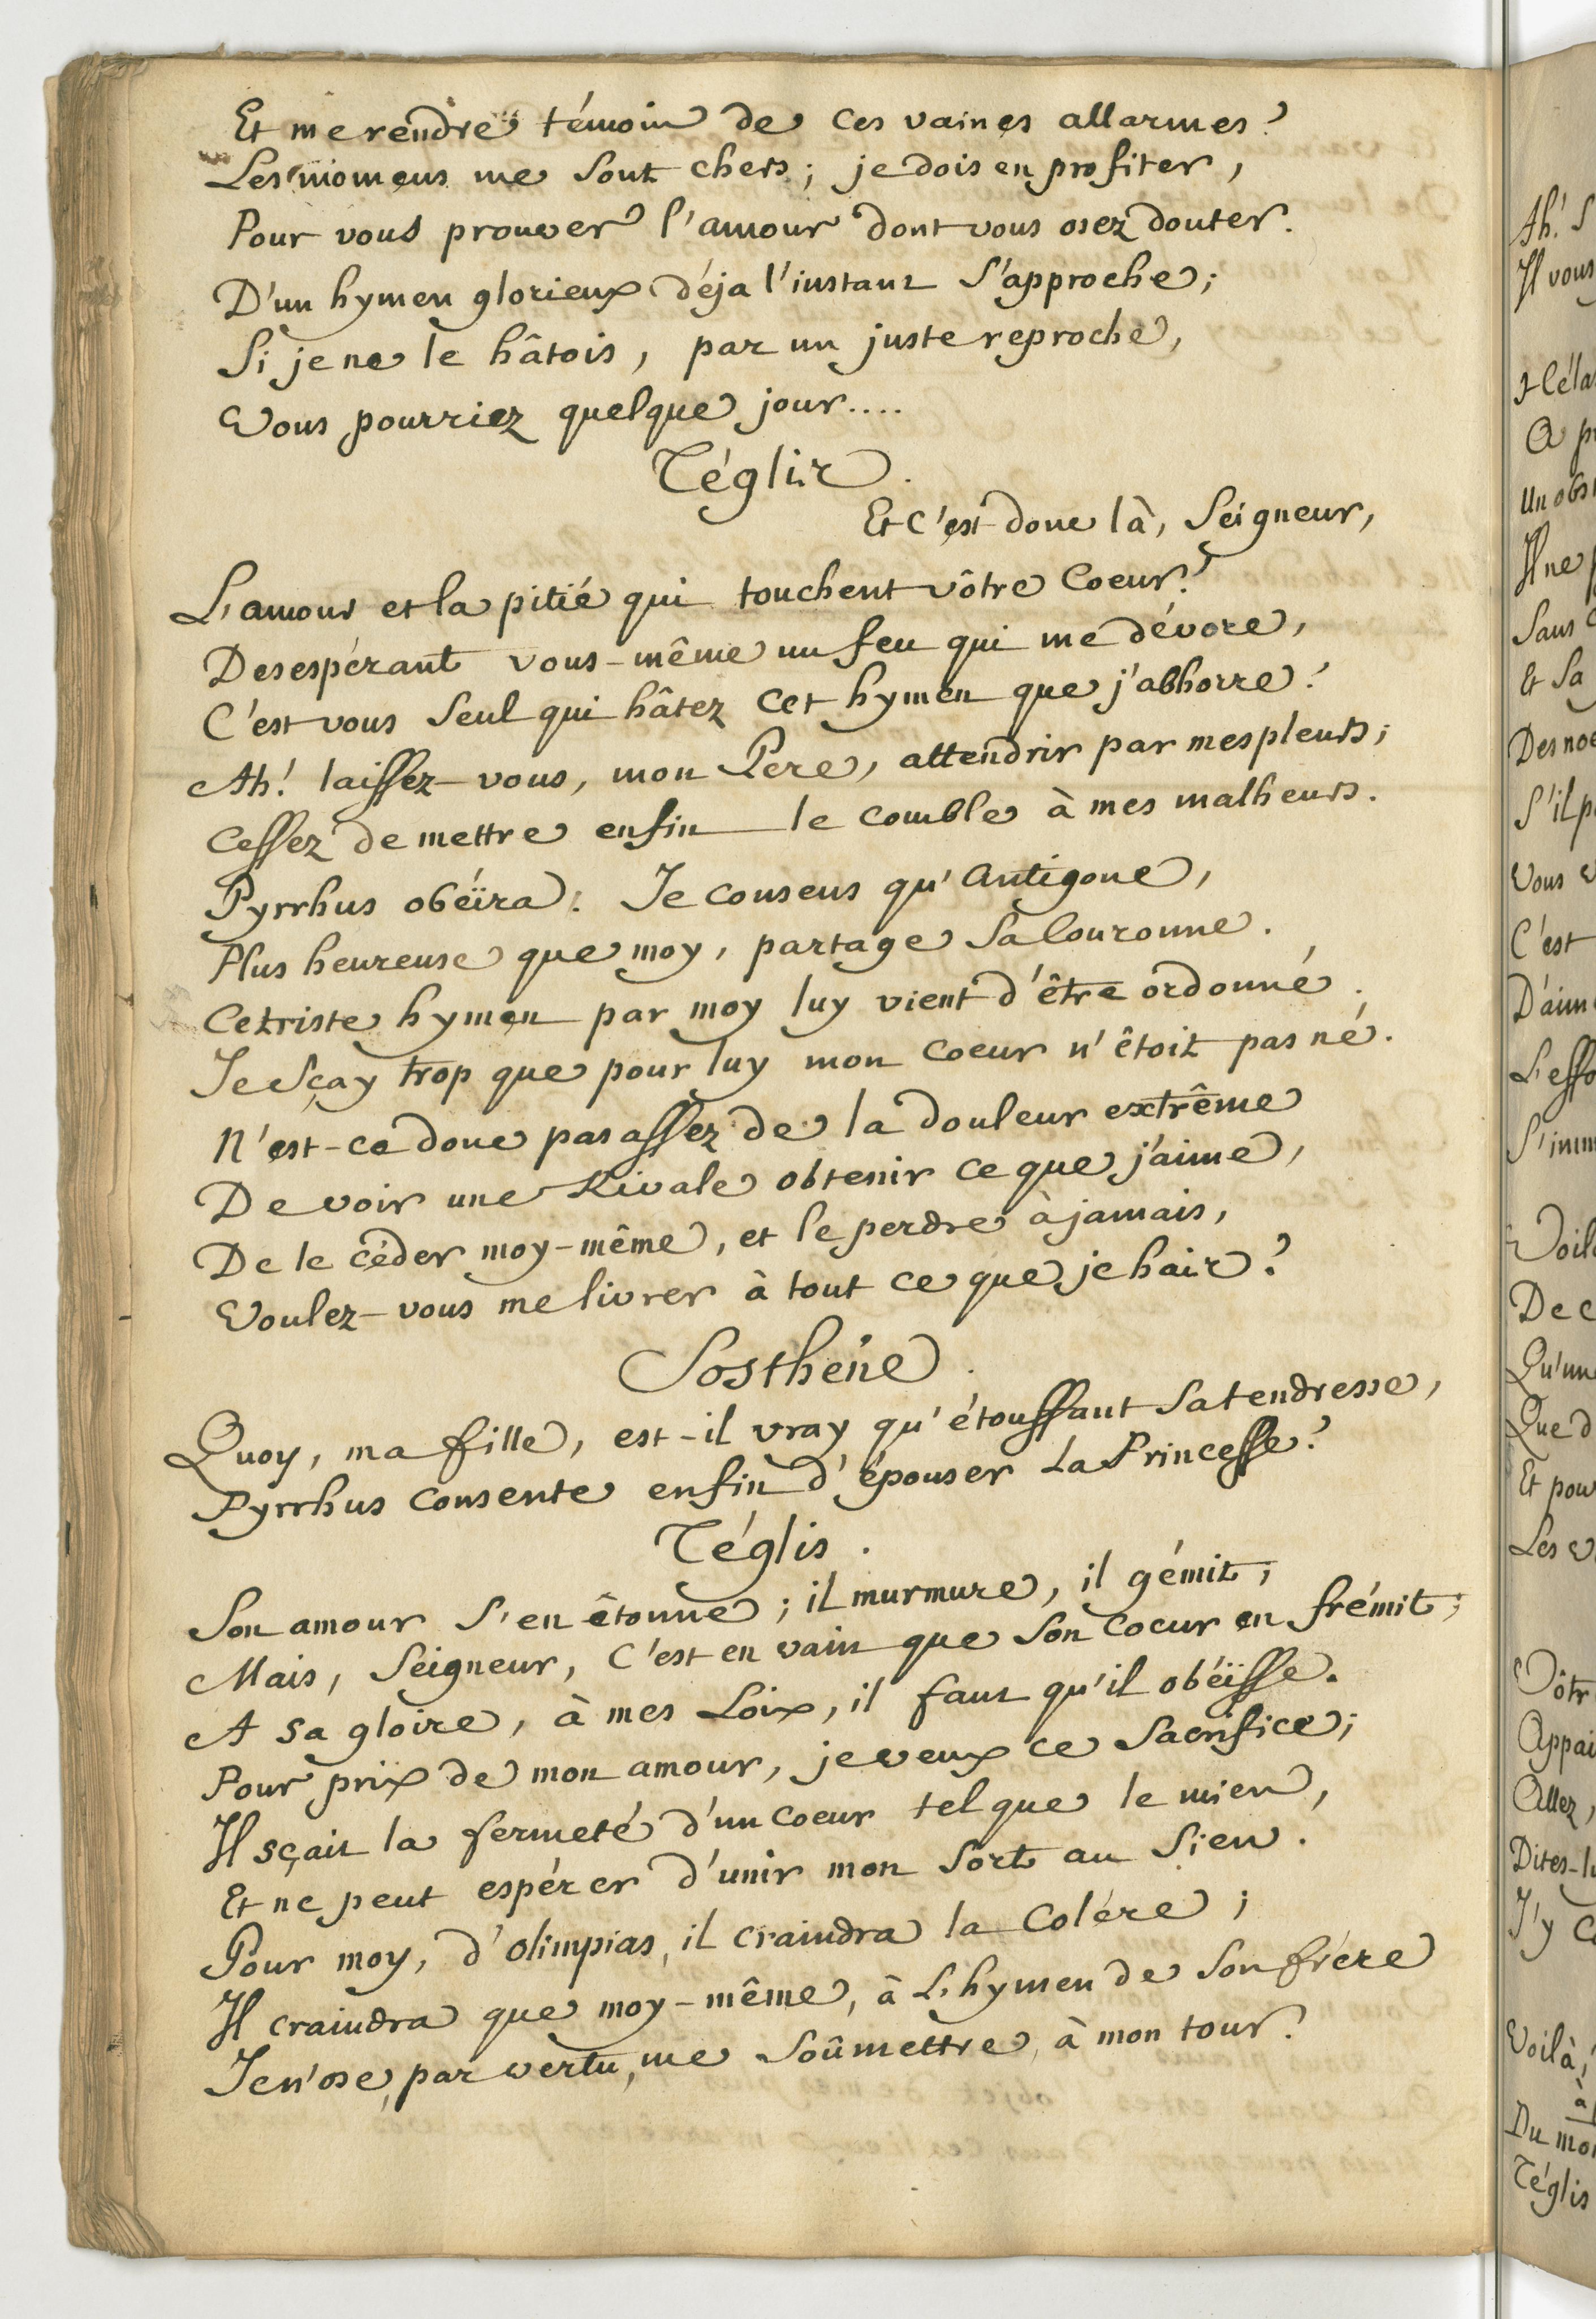 Et me rendre témoin de ces vaines allarmes?
Les momens me sont chers; je dois en profiter,
Pour vous prouver l'amour dont vous osez douter.
D'un hymen glorieux déja l'instant s'approche;
Si je ne le hâtois, par un juste reproche,
Vous pourriez quelque jour....
Téglis.
Et c'est donc là, Seigneur,
L'amour et la pitié qui touchent vôtre Coeur?
Desespérant vous-même un feu qui me dévore,
C'est vous seul qui hâtez cet hymen que j'abhorre!
Ah! laissez-vous, mon Pere, attendrir par mes pleurs;
Cessez de mettre enfin le comble à mes malheurs.
Pyrrhus obéïra. Je consens qu'Antigone,
Plus heureuse que moy, partage sa Couronne.
Ce triste hymen par moy luy vient d'être ordonné.
Je sçay trop que pour luy mon coeur n'êtoit pas né.
N'est-ce donc pas assez de la douleur extrême
De voir une Rivale obtenir ce que j'aime,
De le céder moy-même, et le perdre à jamais,
Voulez-vous me livrer à tout ce que je hais?
Sosthéne.
Quoy, ma fille, est-il vray qu'étouffant sa tendresse,
Pyrrhus consente enfin d'épouser La Princesse?
Téglis.
Son amour s'en êtonne; il murmure, il gémit;
Mais, Seigneur, c'est en vain que son coeur en frémit;
A sa gloire, à mes Loix, il faut qu'il obéïsse.
Pour prix de mon amour, je veux ce sacrifice;
Il sçait la fermeté d'un coeur tel que le mien,
Et ne peut espérer d'unir mon sort au sien.
Pour moy, d'Olimpias, il craindra la Colére;
Il craindra que moy-même, à L'hymen de son frére
Je n'ose, par vertu, me soûmettre, à mon tour.
Ah! S
Il vous
A pr
Il ne p
Sans c
Et sa
Des noe
S'il p
Vous v
C'est
D'aim
L'effo
S'imm
Voil
De c
Qu'un
Que d
Et pou
Les v
Vôtr
Appai
Allez,
Dites-lu
J'y c
Voilà,
à
Du mo
Téglis